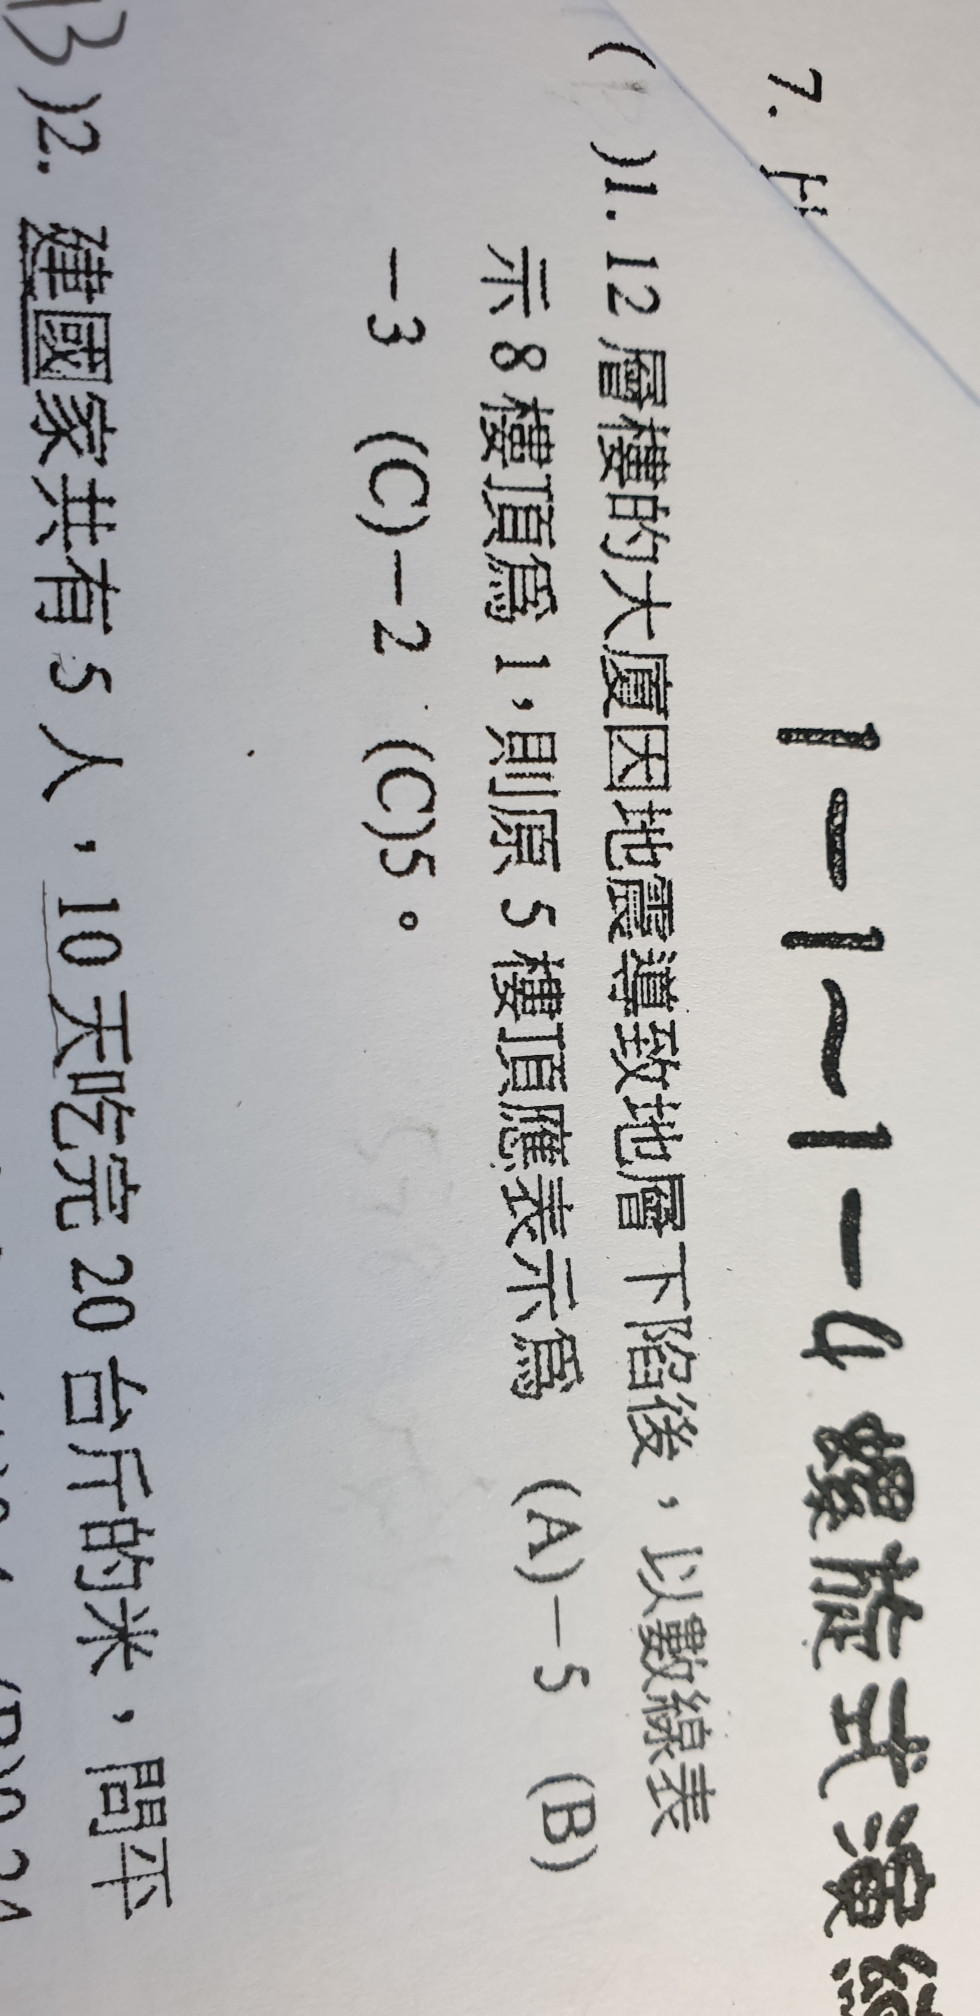 1－1～1－4 螺旋式演
7.
(  )1. 12 層樓的大廈因地震導致地層下陷後，以數線表
示 8 樓頂為 1，則原 5 樓頂應表示為 (A)－5 (B)
－3 (C)－2 (C)5。
B )2. 建國家共有 5 人，10 天吃完 20 台斤的米，問平